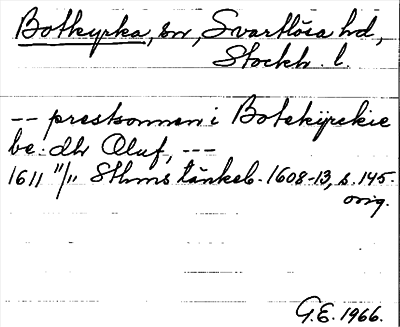 Botkyrka, sn, Svartlösa hd,
Stockh. l.
-- prestsonnen i Botekÿrckie
be: dh Oluf, ---
1611 11/11 Sthms tänkeb. 1608-13, s. 145.
orig.
G.E. 1966.